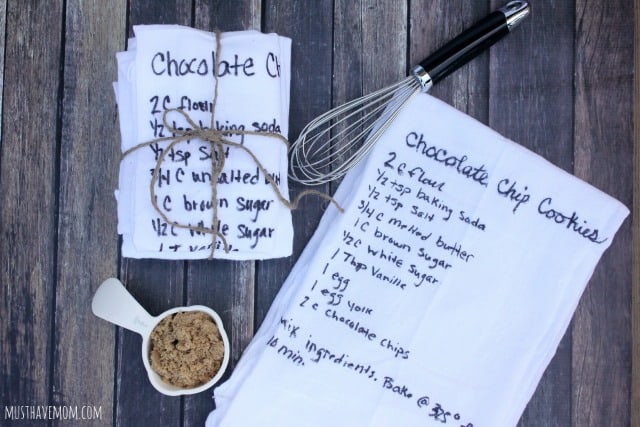 Chocolate Ch
2 C flour
1/2 tsp baking soda
1/2 tsp Salt
3/4 C unsalted
1 C brown Sugar
1/2 C white Sugar
1 T vanilla
Chocolate Chip Cookies
2 C flour
1/2 tsp baking soda
1/2 tsp Salt
3/4 C melted butter
1 C brown Sugar
1/2 C white Sugar
1 Tbsp Vanilla
1 egg
1 egg yolk
2 C Chocolate Chips
mix ingredients. Bake @ 325°
16 min.
MUSTHAVEMOM.COM